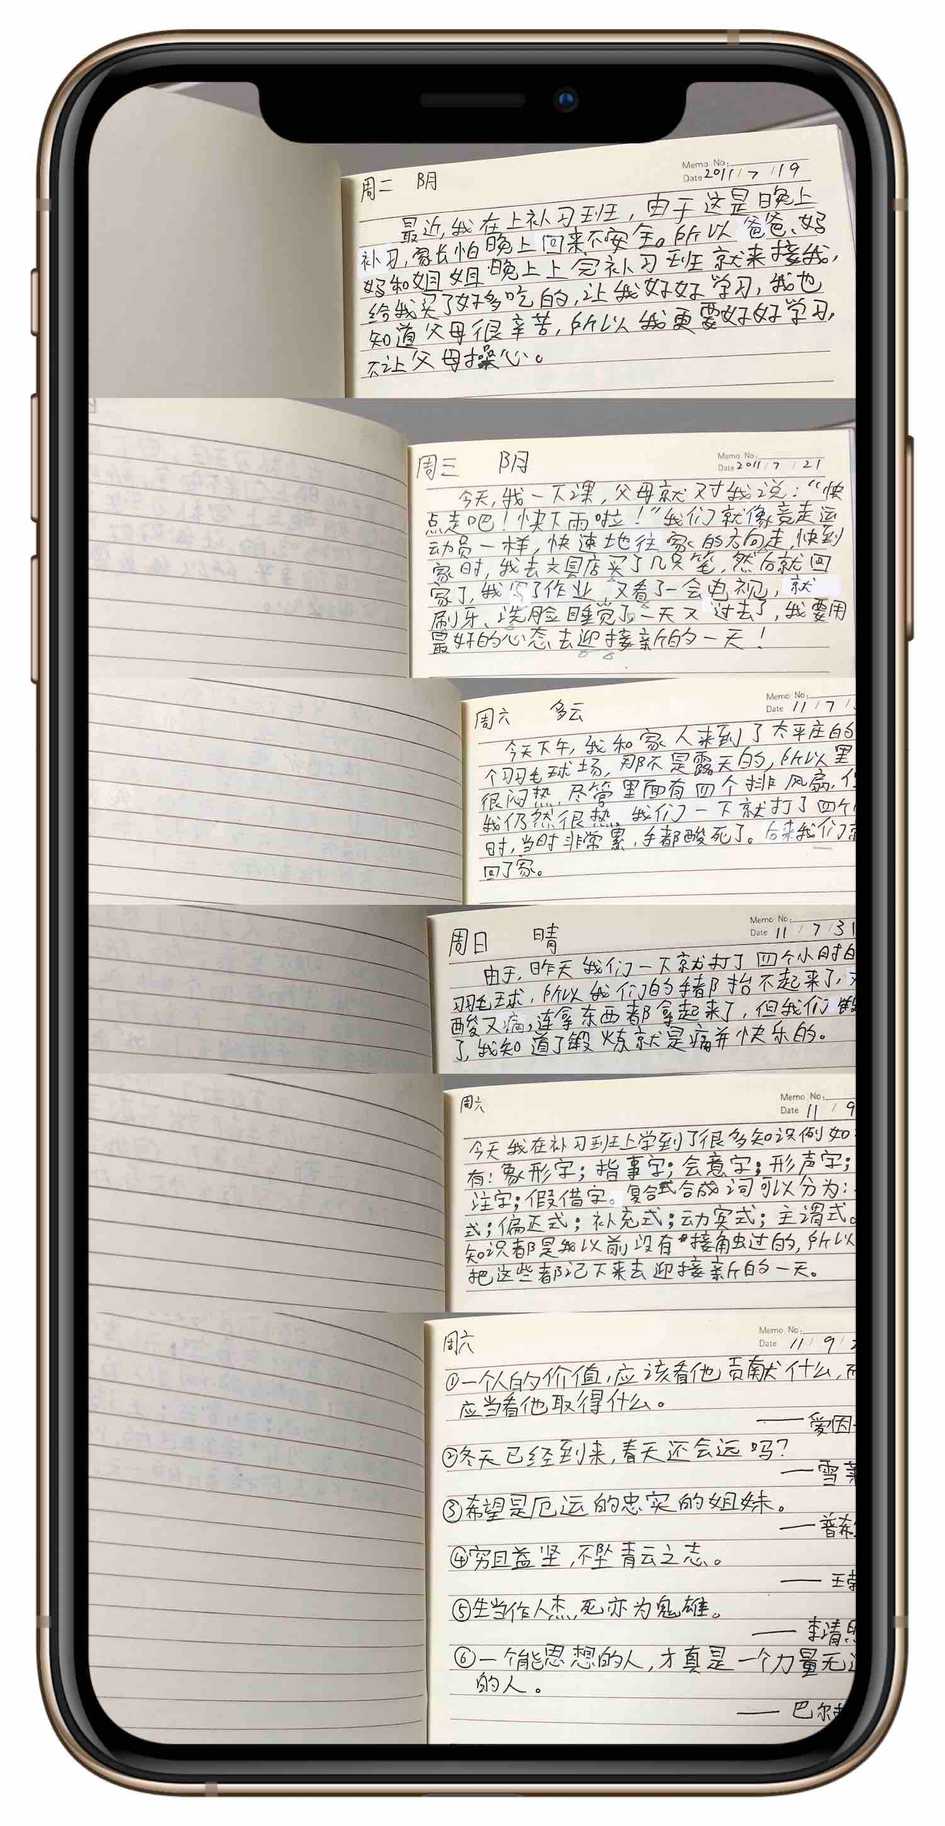 Memo No.
Date 2011 / 7 / 19
周二 阴
最近,我在上补习班，由于这是晚上
补习,家长怕晚上回来不安全。所以爸爸、妈
妈和姐姐晚上上完补习班就来接我,
给我买了好多吃的,让我好好学习,我也
知道父母很辛苦,所以我更要好好学习,
不让父母操心。
Memo No.
Date 2011 / 7 / 21
周三 阴
今天,我一下课，父母就对我说：“快
点走吧！快下雨啦！”我们就像竞走运
动员一样，快速地往家的方向走,快到
家时,我去文具店买了几只笔,然后就回
家了,我写了作业,又看了一会电视,就
刷牙、洗脸睡觉了一天又过去了,我要用
最好的心态去迎接新的一天！
Memo No.
Date 11 / 7 /
周六 多云
今天下午,我和家人来到了太平庄的
个羽毛球场,那不是露天的,所以里
很闷热,尽管里面有四个排风扇,但
我仍然很热,我们一下就打了四个
时,当时非常累,手都酸死了。后来我们
回了家。
Memo No.
Date 11 / 7 / 31
周日 晴
由于,昨天我们一下就打了四个小时的
羽毛球,所以我们的手都抬不起来了,
酸又痛,连拿东西都拿起来了,但我们
了,我知道了锻炼就是痛并快乐的。
Memo No.
Date 11 / 9
周六
今天我在补习班上学到了很多知识例如:
有:象形字;指事字;会意字;形声字;
注字;假借字。复合式合成词可以分为:
式;偏正式;补充式;动宾式;主谓式。
知识都是我以前没有接触过的,所以
把这些都记下来去迎接新的一天。
Memo No.
Date 11 / 9 /
周六
①一个人的价值,应该看他贡献什么,而
应当看他取得什么。
——爱因
②冬天已经到来,春天还会远吗?
——雪莱
③希望是厄运的忠实的姐妹。
——普希
④穷且益坚,不坠青云之志。
——王勃
⑤生当作人杰,死亦为鬼雄。
——李清照
⑥一个能思想的人,才真是一个力量无边
的人。
——巴尔